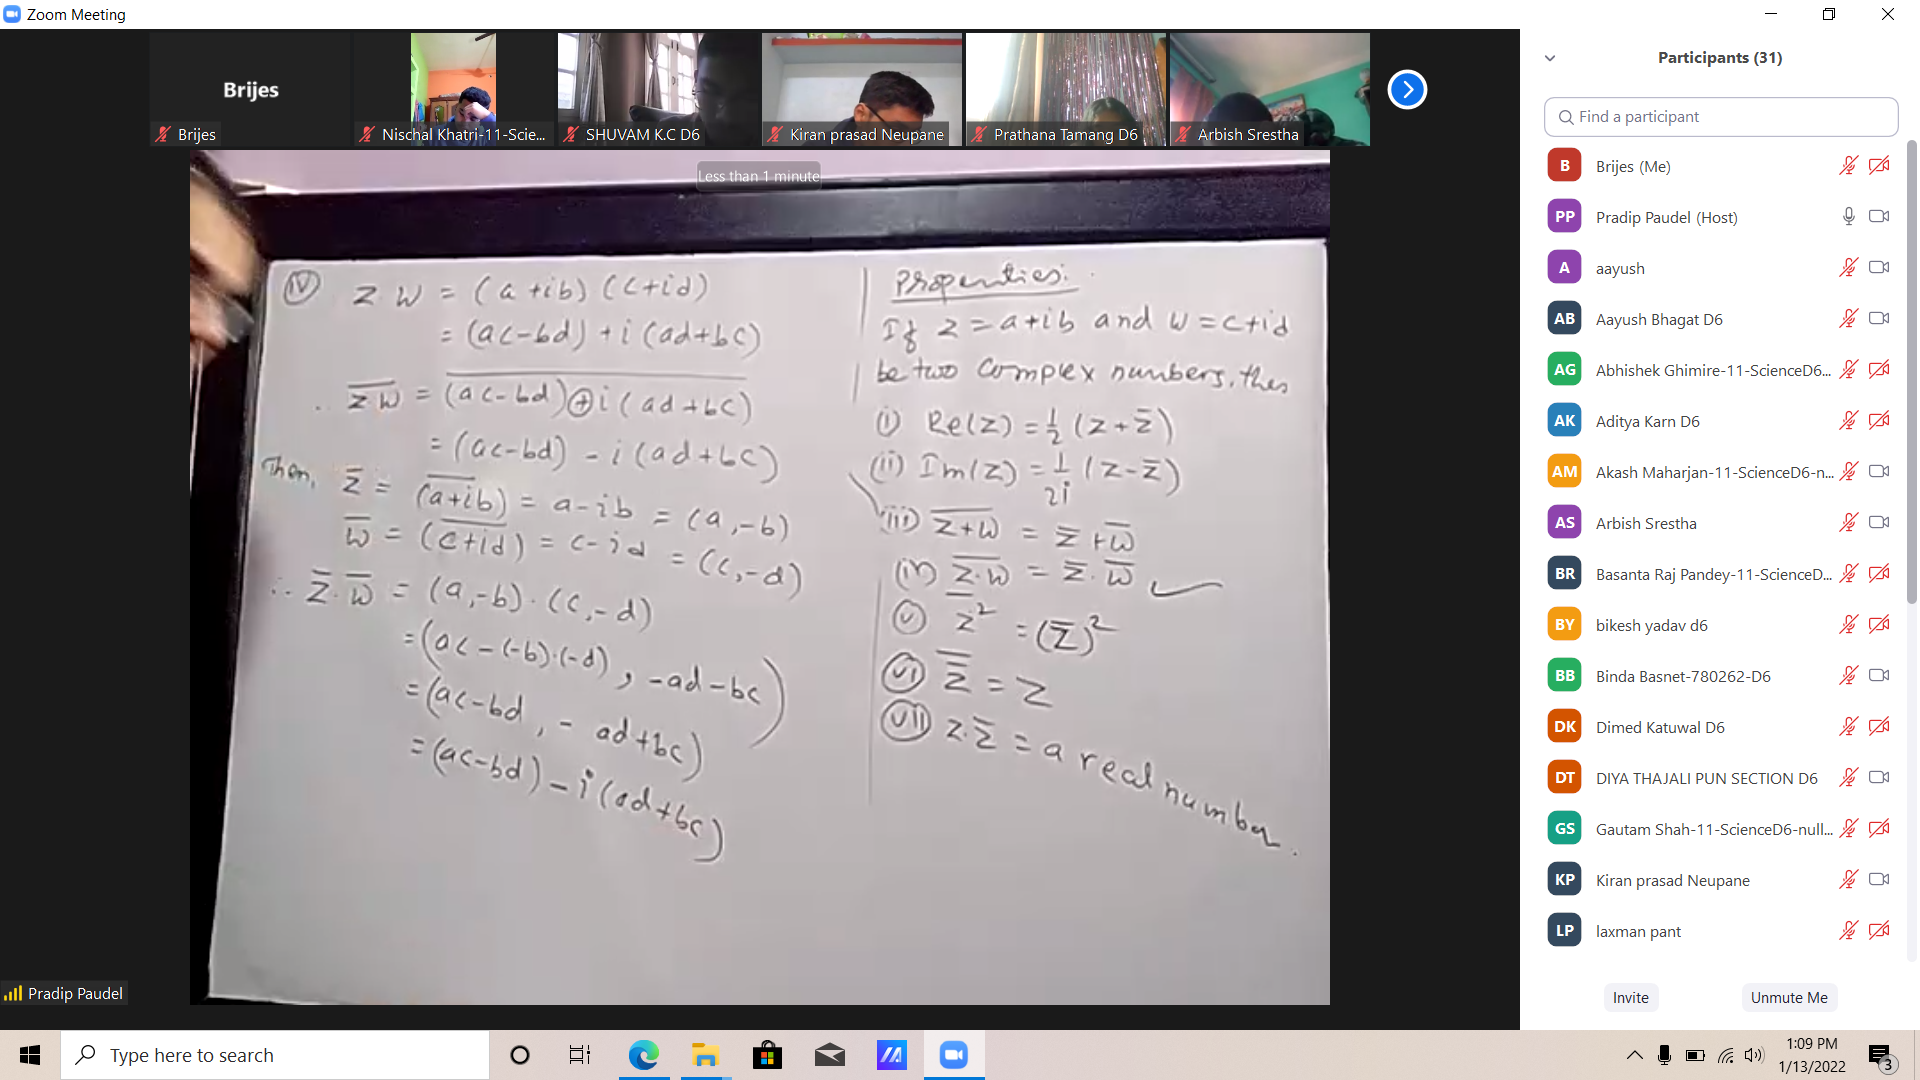 Zoom Meeting
Brijes
Brijes
Nischal Khatri-11-Scie...
SHUVAM K.C D6
Kiran prasad Neupane
Prathana Tamang D6
Arbish Srestha
Less than 1 minute
(iv) z w = (a+ib) (c+id)
= (ac-bd) + i (ad+bc)
∴ \overline{zw} = \overline{(ac-bd) + i (ad+bc)}
= (ac-bd) - i (ad+bc)
Then, z̅ = \overline{(a+ib)} = a-ib = (a,-b)
w̅ = \overline{(c+id)} = c-id = (c,-d)
∴ z̅.w̅ = (a,-b).(c,-d)
= (ac-(-b).(-d), -ad-bc)
= (ac-bd, - ad+bc)
= (ac-bd) - i (ad+bc)
Properties:
If z = a+ib and w = c+id
be two complex numbers, then
(i) Re(z) = 1/2 (z+z̅)
(ii) Im(z) = 1/2i (z-z̅)
(iii) \overline{z+w} = z̅+w̅
(iv) \overline{z.w} = z̅.w̅
(v) \overline{z²} = (z̅)²
(vi) \overline{z̅} = z
(vii) z.z̅ = a real number.
Pradip Paudel
Participants (31)
Find a participant
B Brijes (Me)
PP Pradip Paudel (Host)
A aayush
AB Aayush Bhagat D6
AG Abhishek Ghimire-11-ScienceD6...
AK Aditya Karn D6
AM Akash Maharjan-11-ScienceD6-n...
AS Arbish Srestha
BR Basanta Raj Pandey-11-ScienceD...
BY bikesh yadav d6
BB Binda Basnet-780262-D6
DK Dimed Katuwal D6
DT DIYA THAJALI PUN SECTION D6
GS Gautam Shah-11-ScienceD6-null...
KP Kiran prasad Neupane
LP laxman pant
Invite
Unmute Me
Type here to search
1:09 PM
1/13/2022
3